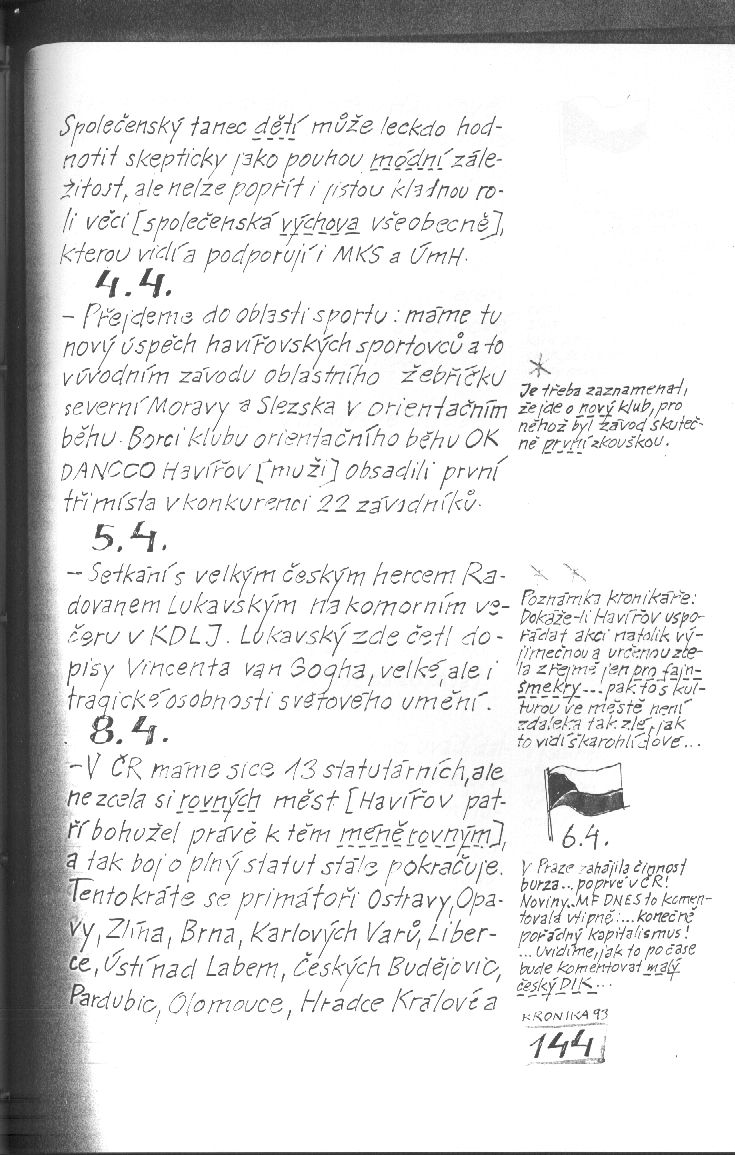 Společenský tanec dětí může leckdo hod-
notit skepticky jako pouhou módní zále-
žitost, ale nelze popřít i jistou kladnou ro-
li věci [společenská výchova všeobecně],
kterou vidí a podporují i MKS a ÚmH.
4.4.
- Přejdeme do oblasti sportu: máme tu
nový úspěch havířovských sportovců a to
v úvodním závodu oblastního žebříčku
severní Moravy a Slezska v orientačním
běhu. Borci klubu orientačního běhu OK
DANCCO Havířov [muži] obsadili první
tři místa v konkurenci 22 závodníků.
5.4.
- Setkání s velkým českým hercem Ra-
dovanem Lukavským na komorním ve-
čeru v KDLJ. Lukavský zde četl do-
pisy Vincenta van Gogha, velké, ale i
tragické osobnosti světového umění.
8.4.
- V ČR máme sice 13 statutárních, ale
ne zcela si rovných měst [Havířov pat-
ří bohužel právě k těm méně rovným],
a tak boj o plný statut stále pokračuje.
Tentokráte se primátoři Ostravy, Opa-
vy, Zlína, Brna, Karlových Varů, Liber-
ce, Ústí nad Labem, Českých Budějovic,
Pardubic, Olomouce, Hradce Králové a
Je třeba zaznamenat,
že jde o nový klub, pro
něhož byl závod skuteč-
ně první zkouškou.
Poznámka kronikáře:
Dokáže-li Havířov uspo-
řádat akci natolik vý-
jimečnou a určenou zce-
la zřejmě jen pro fajn-
šmekry... pak to s kul-
turou ve městě není
zdaleka tak zlé, jak
to vidí škarohlídové...
6.4.
V Praze zahájila činnost
burza... poprvé v ČR!
Noviny..MF DNES to komen-
tovala vtipně:... konečně
pořádný kapitalismus!
... Uvidíme, jak to po čase
bude komentovat malý
český DIK...
KRONIKA 93
144